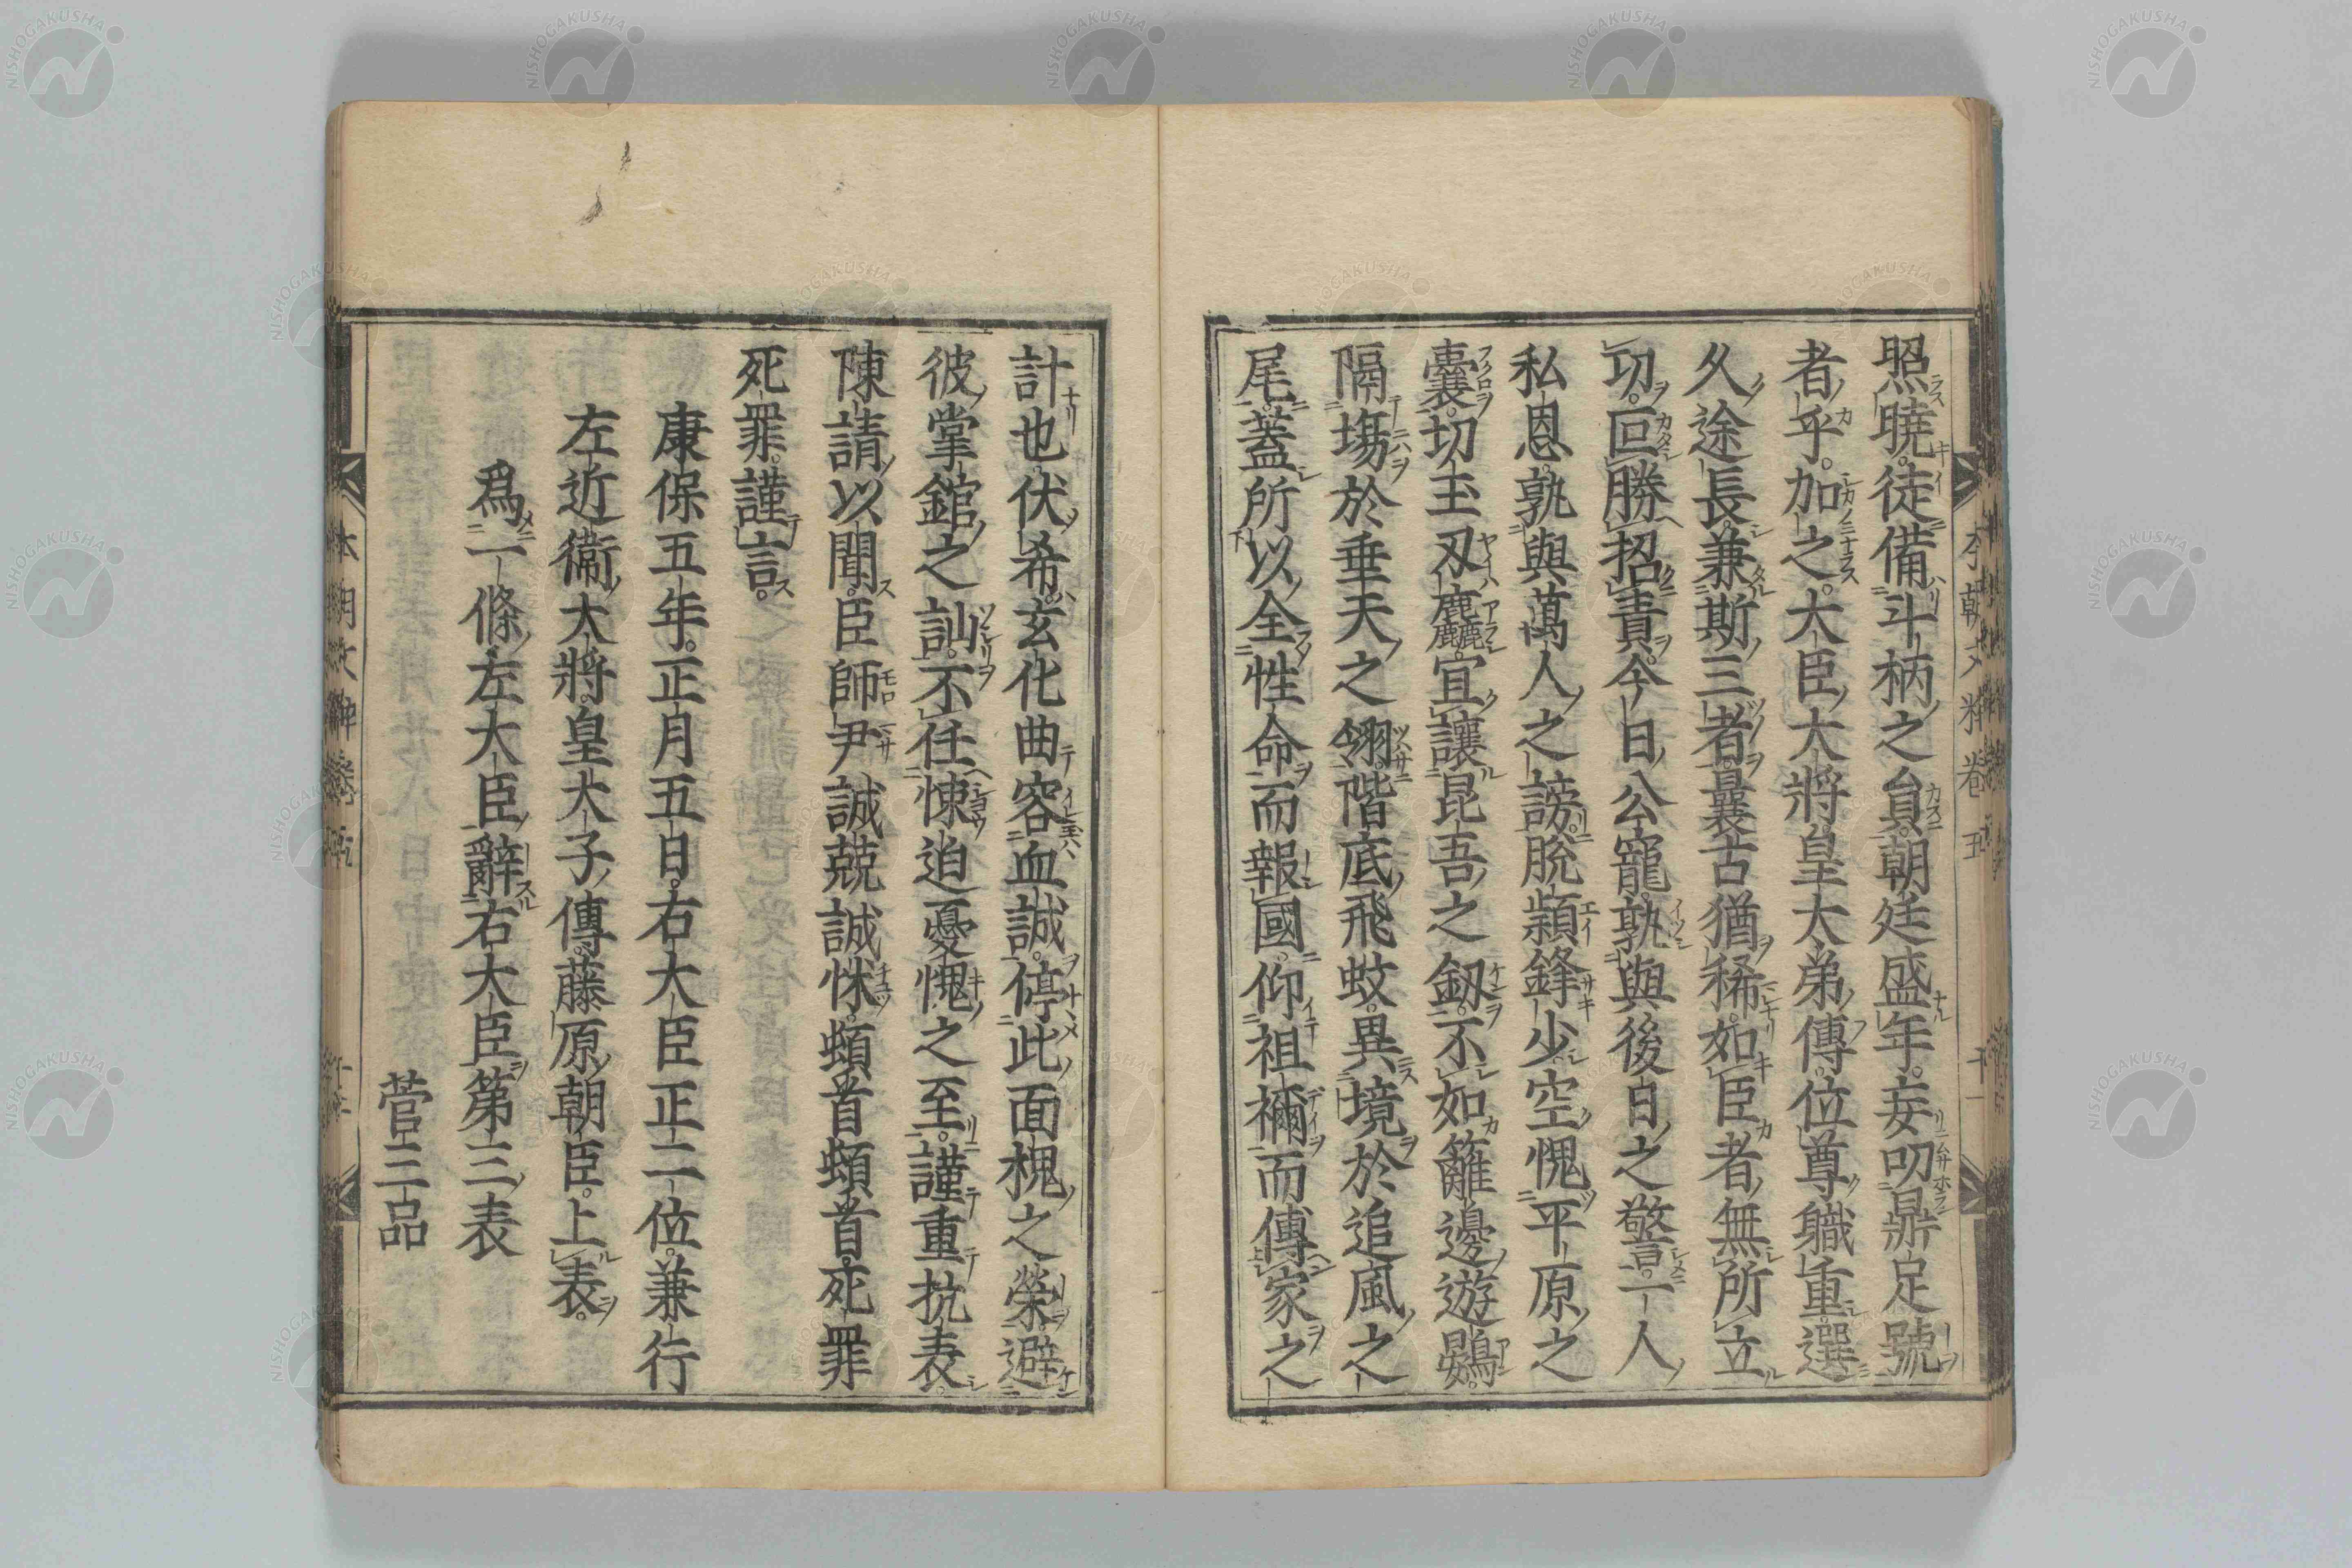 照曉徒備斗柄之員朝廷盛年妄叨鼎足號
者乎。加之。大臣大將皇大弟傅。位尊職重選
久途長。兼斯三者。曩古猶稀。如臣者無所立
切。回勝招責。今日公寵。孰與後日之警。一人
私恩。孰與萬人之謗。脫穎鋒少。空愧平原之
囊。切玉刃麤。宜讓昆吾之釼。不如籬邊遊鷃。
隔塲於垂天之翎。階底飛蚊。異境於追風之
尾。蓋所以全性命而報國。仰祖禰而傳家之
計也。伏希。玄化曲容血誠。停此面槐之榮。避
彼掌舘之訕。不任悚迫憂愧之至。謹重抗表。
陳請以聞。臣師尹誠兢誠怵。頓首頓首。死罪
死罪。謹言。
康保五年。正月五日。右大臣正二位兼行
左近衞大將。皇大子傅。藤原朝臣。上表。
爲一條左大臣辭右大臣第三表
菅三品
本朝文粹卷五
NISHOGAKUSHA